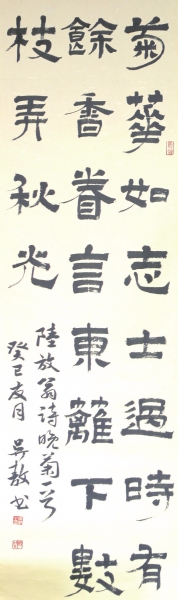 菊華如志士過時有
餘香眷言東籬下數
枝弄秋光
陸放翁詩晚菊一首
癸巳 月 吳 书